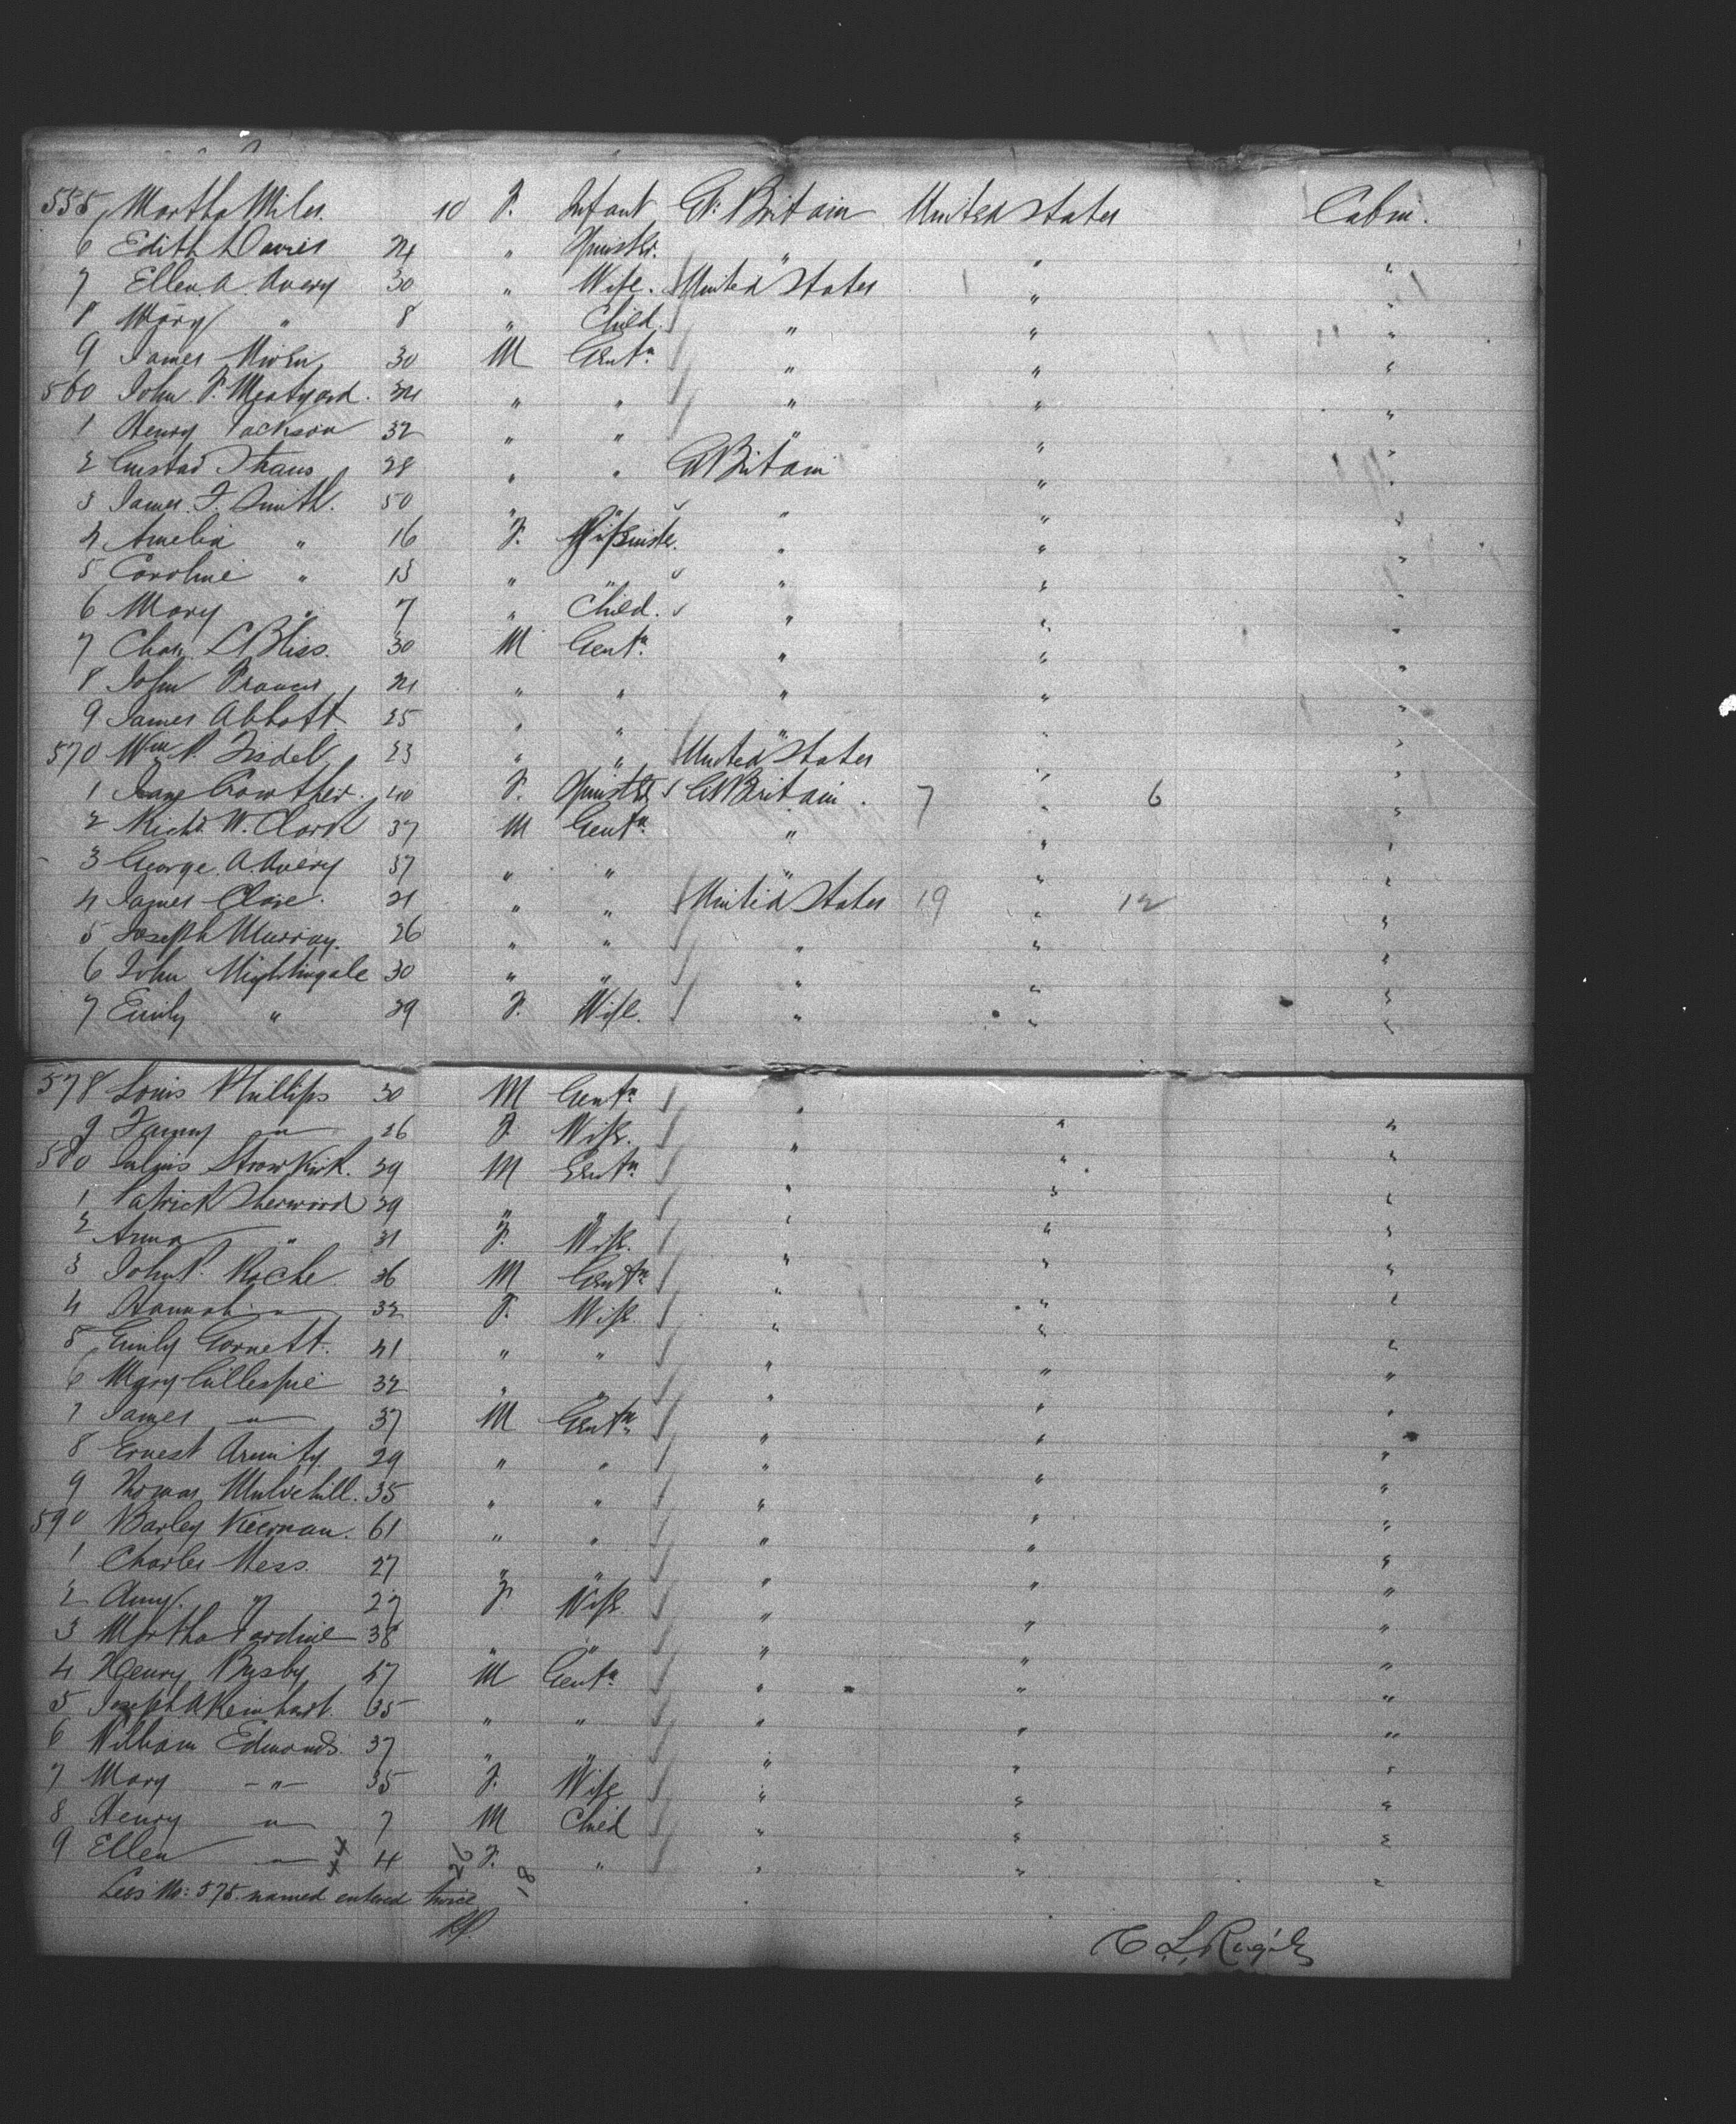 555 Martha Miles. 10 F. Infant Gt. Britain United States Cabin.
6 Edith Davies 24 " Spinster. " " "
7 Ellen A. Avery 30 " Wife. United States " "
8 Mary " 8 " Child. " " "
9 James 30 M Gentn. " " "
560 John F. Meatyard. 34 " " " " "
1 Henry Jackson 32 " " " " "
2 Gustav Straus 28 " " Gt Britain " "
3 James F. Smith. 50 " " " " "
4 Amelia " 16 F. Spinster. " " "
5 Caroline " 13 " " " " "
6 Mary " 7 " Child. " " "
7 Chas. L Bliss. 30 M Gentn. " " "
8 John Francis 21 " " " " "
9 James Abbott 25 " " " " "
570 Wm P. Tisdel 23 " " United States " "
1 Jane Crowther. 40 F. Spinster Gt Britain. 7 " 6 "
2 Richd. W. Clark 37 M Gentn. " " "
3 George A. Avery 37 " " " " "
4 James Clare. 21 " " United States 19 " 12 "
5 Joseph Murray. 26 " " " " "
6 John Nightingale 30 " " " " "
7 Emily " 29 F. Wife. " " "
578 Louis Phillips 30 M Gentn. "
9 Fanny " 26 F. Wife. " " "
580 Julius 39 M Gentn. " " "
1 Patrick Sherwood 39 " " " " "
2 Anna " 31 F. Wife. " " "
3 John P. Roche 36 M Gentn. " " "
4 Hannah " 32 F. Wife. " " "
5 Emily Garnett. 41 " " " " "
6 Mary Gillespie 32 " " " " "
7 James " 37 M Gentn. " " "
8 Ernest 29 " " " " "
9 Thomas Mulvehill. 35 " " " " "
590 Barley Kiernan. 61 " " " " "
1 Charles Hess. 27 " " " " "
2 Amy. " 27 F. Wife. " " "
3 Martha Jardine 38 " " " " "
4 Henry Busby 47 M Gentn. " " "
5 Joseph A Reinhart. 35 " " " " "
6 William Edmonds. 37 " " " " "
7 Mary " 35 F. Wife " " "
8 Henry " 7 M Child " " "
9 Ellen " 4 F. " " " "
Less No: 575 named entered twice